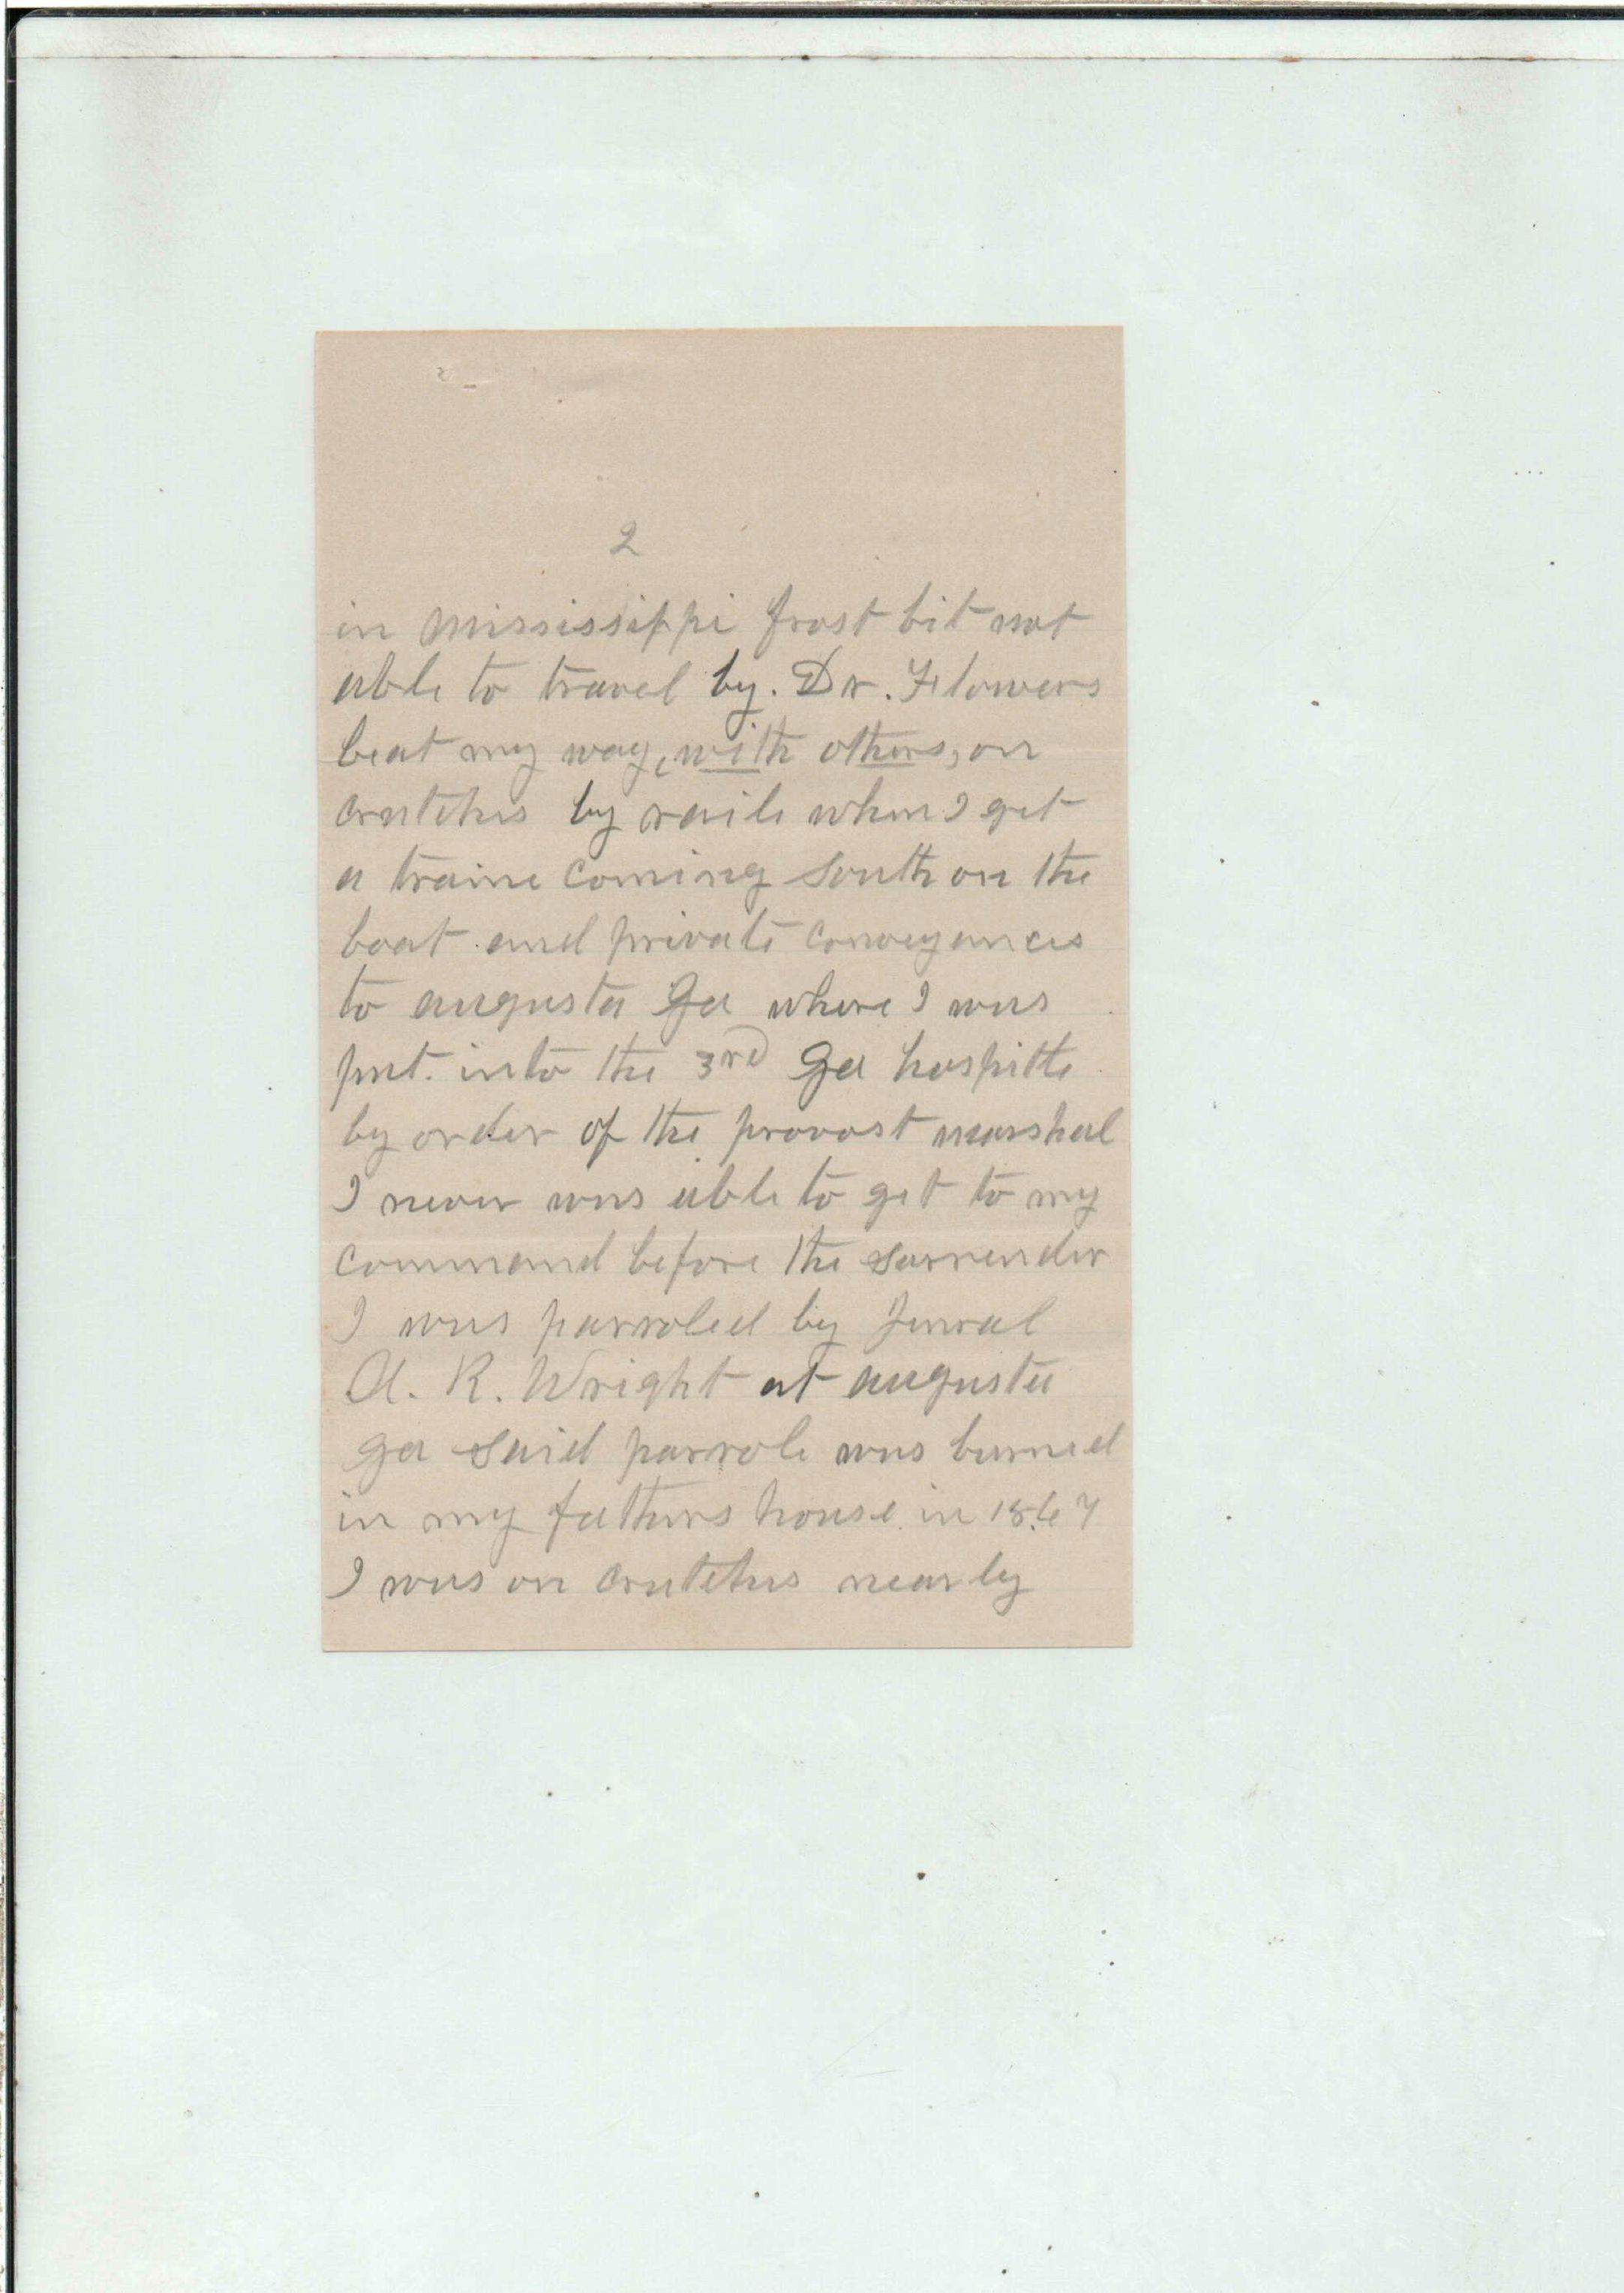 2
in Mississippi frost bit not
able to travel by. Dr. Flowers
beat my way, with others, on
crutches by raile when I get
a traine coming South on the
boat and private conveyances
to augusta Ga where I was
put into the 3rd Ga hospitle
by order of the provost marshal
I never was able to get to my
command before the surrender
I was parroled by Jenral
A. R. Wright at augusta
ga said parrole was burned
in my fathers house in 1867
I was on crutches nearly